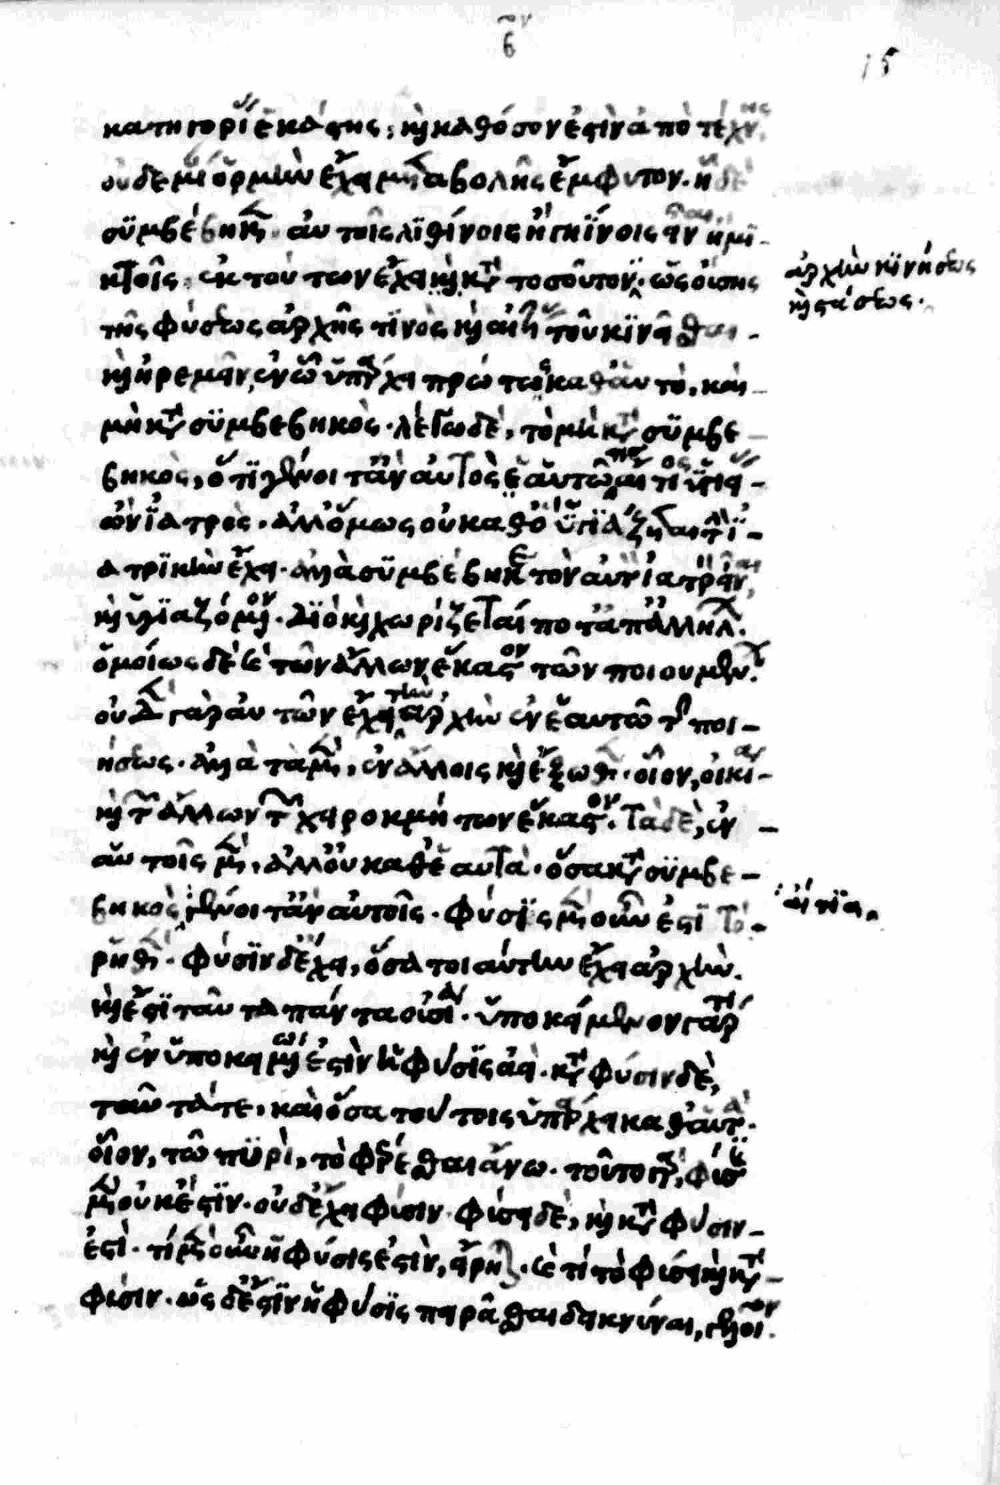 β ον
15
κατηγορίας ἑκάστης, καὶ καθόσον ἐστὶν ἀπὸ τέχνης,
οὐδεμίαν ὁρμὴν ἔχει μεταβολῆς ἔμφυτον. ᾗ δὲ
συμβέβηκεν αὐτοῖς λιθίνοις ἢ γηΐνοις εἶναι ἢ μι-
κτοῖς ἐκ τούτων ἔχει, καὶ κατὰ τοσοῦτον. ὡς οὔσης
ἀρχὴν κινήσεως
καὶ στάσεως.
τῆς φύσεως ἀρχῆς τινὸς καὶ αἰτίας τοῦ κινεῖσθαι
καὶ ἠρεμεῖν, ἐν ᾧ ὑπάρχει πρώτως καθ' αὑτὸ, καὶ
μὴ κατὰ συμβεβηκὸς. λέγω δὲ, τὸ μὴ κατὰ συμβε-
βηκὸς, ὅτι γένοιτ' ἂν αὐτὸς ἑαυτῷ τις αἴτιος ὑγιείας
ὢν ἰατρὸς. ἀλλ' ὅμως οὐ καθὸ ὑγιάζεται τὴν ἰ-
ατρικὴν ἔχει. ἀλλὰ συμβέβηκε τὸν αὐτὸν ἰατρὸν εἶναι,
καὶ ὑγιαζόμενον. διὸ καὶ χωρίζεταί ποτ' ἀπ' ἀλλήλων.
ὁμοίως δὲ καὶ τῶν ἄλλων ἕκαστον τῶν ποιουμένων.
οὐδὲν γὰρ αὐτῶν ἔχει τὴν ἀρχὴν ἐν ἑαυτῷ τῆς ποι-
ήσεως. ἀλλὰ τὰ μὲν, ἐν ἄλλοις καὶ ἔξωθεν. οἷον, οἰκία
καὶ τῶν ἄλλων τῶν χειροκμήτων ἕκαστον. τὰ δὲ, ἐν
αὑτοῖς μὲν, ἀλλ' οὐ καθ' ἑαυτὰ. ὅσα κατὰ συμβε-
βηκὸς γένοιτ' ἂν αὑτοῖς. φύσις μὲν οὖν ἐστὶ τὸ
αἴτια,
ῥηθὲν. φύσιν δὲ ἔχει, ὅσα τοιαύτην ἔχει ἀρχὴν.
καὶ ἔστι ταῦτα πάντα οὐσία. ὑποκείμενον γάρ τι
καὶ ἐν ὑποκειμένῳ ἐστὶν ἡ φύσις ἀεὶ. κατὰ φύσιν δὲ,
ταῦτά τε, καὶ ὅσα τούτοις ὑπάρχει καθ' αὑτὰ.
οἷον, τῷ πυρὶ, τὸ φέρεσθαι ἄνω. τοῦτο γὰρ, φύσις
μὲν οὐκ ἔστιν. οὐδ' ἔχει φύσιν. φύσει δὲ, καὶ κατὰ φύσιν
ἐστὶ. τί μὲν οὖν ἡ φύσις ἐστὶν, εἴρηται. καὶ τί τὸ φύσει καὶ κατὰ
φύσιν. ὡς δ' ἔστιν ἡ φύσις πειρᾶσθαι δεικνύναι, γελοῖον.